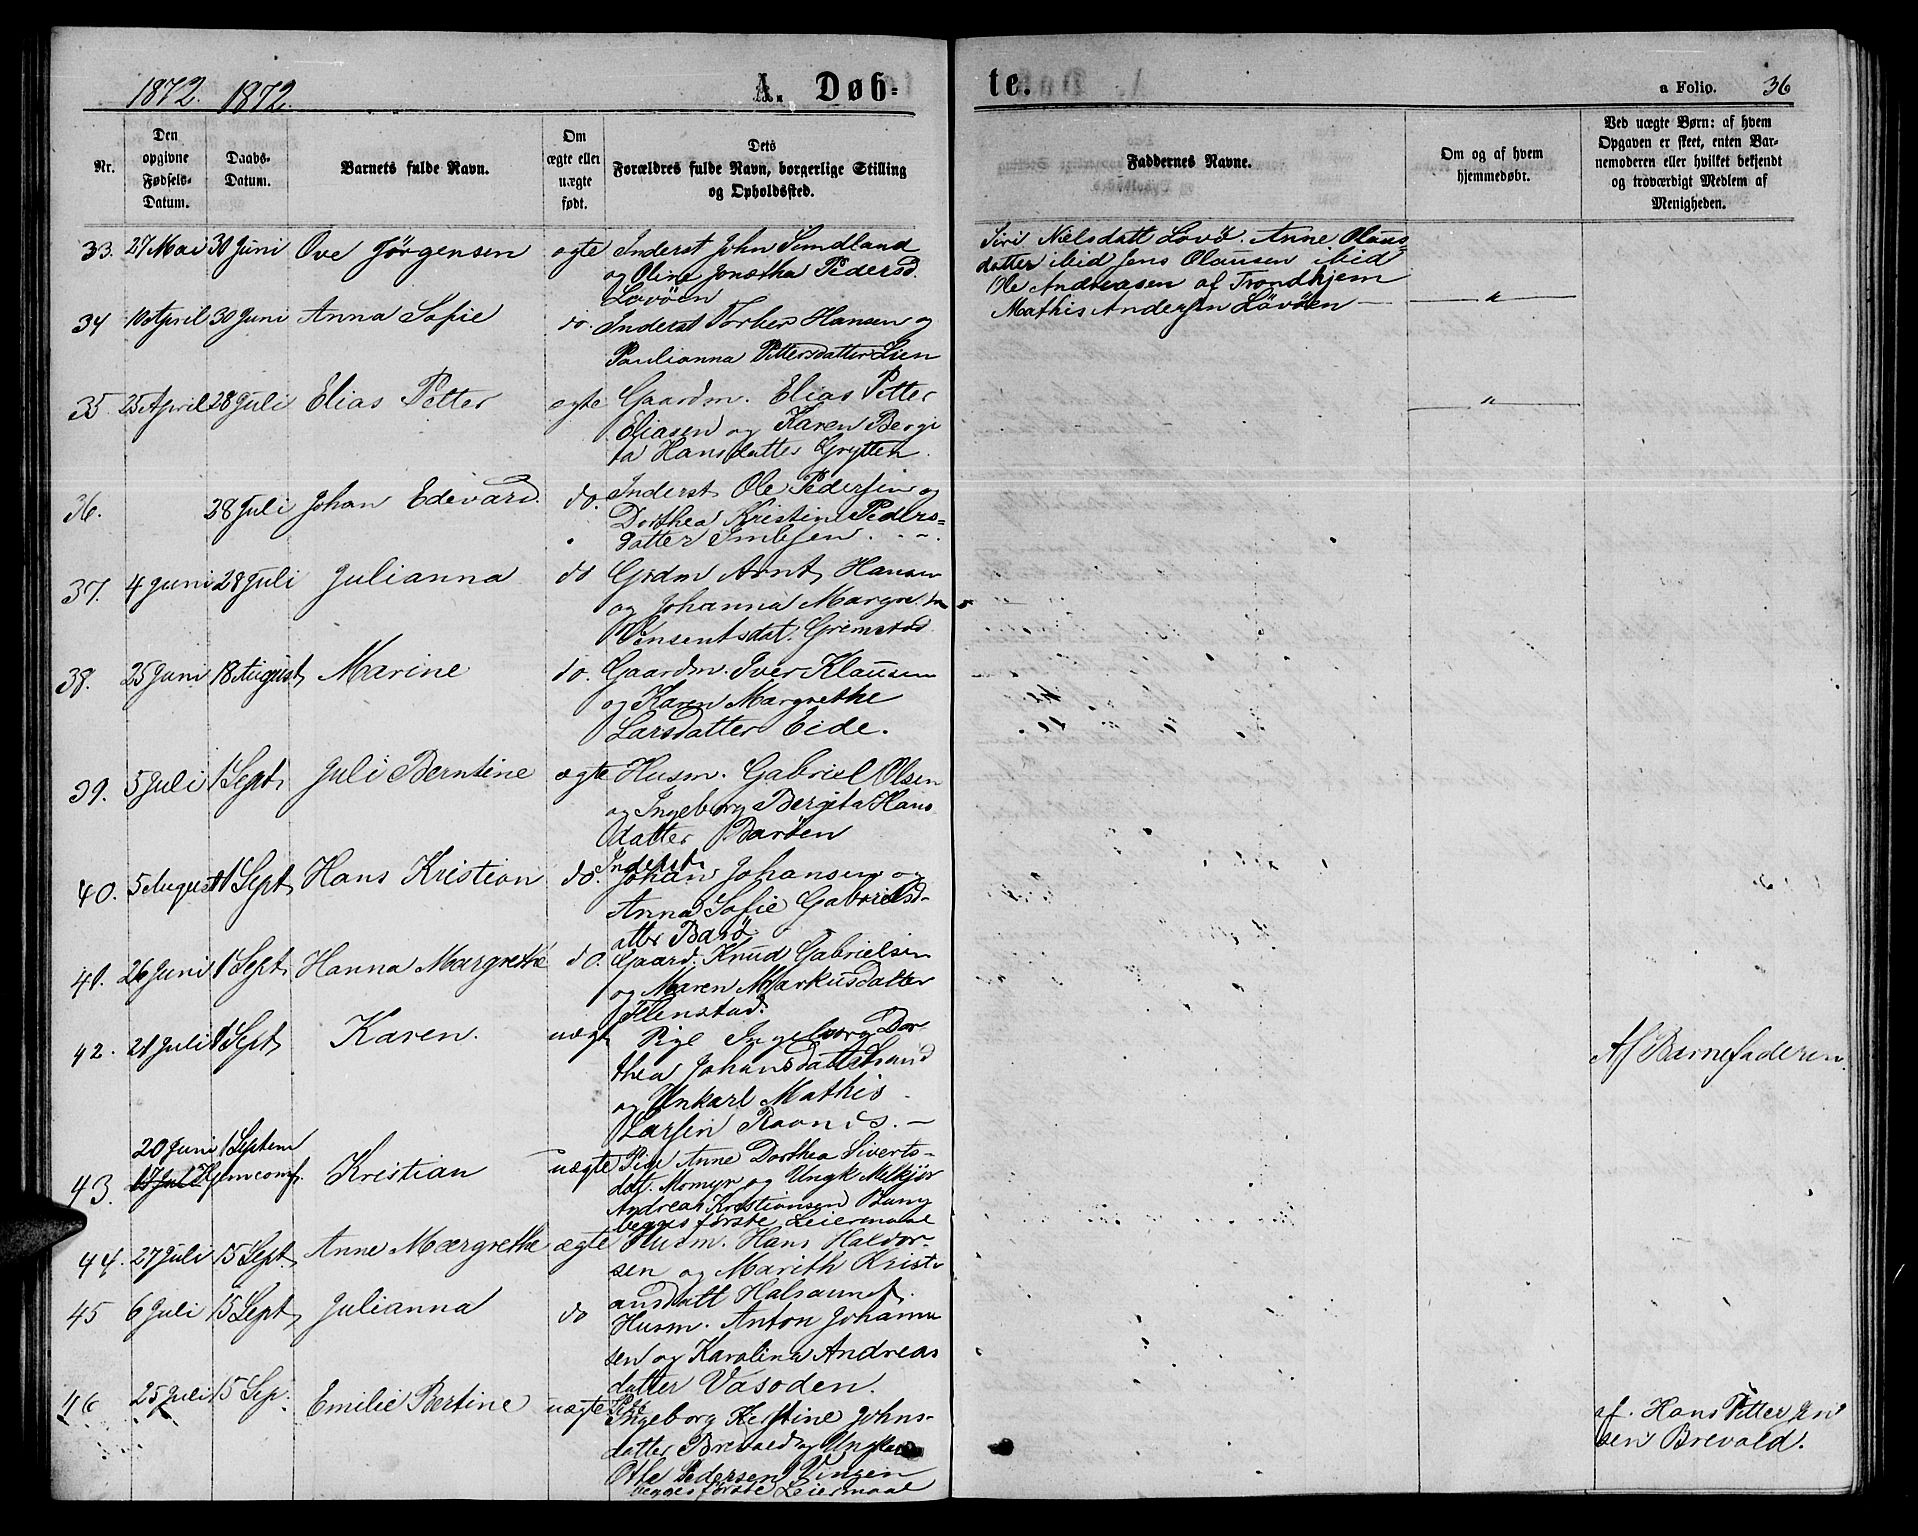 1872. 1872. A. Døb-
Nr.
Den opgivne Fødsels-Datum.
Daabs-Datum.
Barnets fulde Navn.
Om ægte eller uægte født.
Dets Forældres fulde Navn, borgerlige Stilling og Opholdssted.
33. 27 Mai 30 Juni Ove Jörgensen egte Inderst John Sundland
og Oline Jonætha Pedersd.
Lovöen
34 10 April 30 Juni Anna Sofie do. Inderst Torber Hansen og
Paulianna Pettersdatter Lien
35. 25 April 28 Juli Elias Petter egte Gaardm. Elias Petter
Eliasen og Karen Bergi
ta Hansdatter Grytten.
36. 28 Juli Johan Edevard. do. Inderst Ole Pedersen og
Dorthea Kristine Peders=
datter
37. 4 Juni 28 Juli Julianna do Grdm Arnt Hansen
og Johanna Margre
Vinsentsdat. Gremstad
38. 25 Juni 18 August Marine do. Gaardm. Iver Klausen
og Karen Margrethe
Larsdatter Eide.
39. 5 Juli 1 Sept Juli Berntine ægte Husm. Gabriel Olsen
og Ingeborg Bergita Hans
datter Baröen
40. 5 August 1 Sept Hans Kristian do. Inderst Johan Johansen og
Anna Sofie Gabrielsd-
atter Barö
41. 26 Juni 1 Sept Hanna Margrethe do. Gaard. Knud Gabrielsen
og Maren Markusdatter
Flenstad.
42. 21 Juli 1 Sept Karen. uægt Pige Ingeborg Dor-
thea Johansdatt Strand
og Unkarl Mathis
Larsen Ravnes. -
43. 20 Juni 1 Septem Kristian uægte Pige Anne Dorthea Siverts-
Hjemcomf. dat. Momyr og Ungk Melkjör
Andreas Kristiansen Bang
begges förste Leiermaal
44. 27 Juli 15 Sept. Anne Margrethe ægte Husm. Hans Haldor-
sen og Marith Kristi
ansdatt Halsaunet.
45 6 Juli 15 Sept Julianna do Husm. Anton Johanne
sen og Karolina Andreas
datter Vasöden.
46 25 Juli 15 Sep. Emilie Bertine uægte Pige
Ingeborg Kerstine Johns-
datter Brevold og Ungkarl
Otte Pedersen Vingen
begges förste Leiermaal
te. a Folio. 36
Faddernes Navne.
Om og af hvem hjemmedøbt.
Ved uægte Børn: af hvem Opgaven er skeet, enten Barnemoderen eller hvilket bekjendt og troværdigt Medlem af Menigheden.
Siri Nielsdatt Lovö. Anne Olaus=
datter ibid Jens Olausen ibid
Ole Andreasen af Trondhjem
Mathis Andersen Lövöen — "
"
Af Barnefaderen.
af. Hans Petter
sen Brevold.